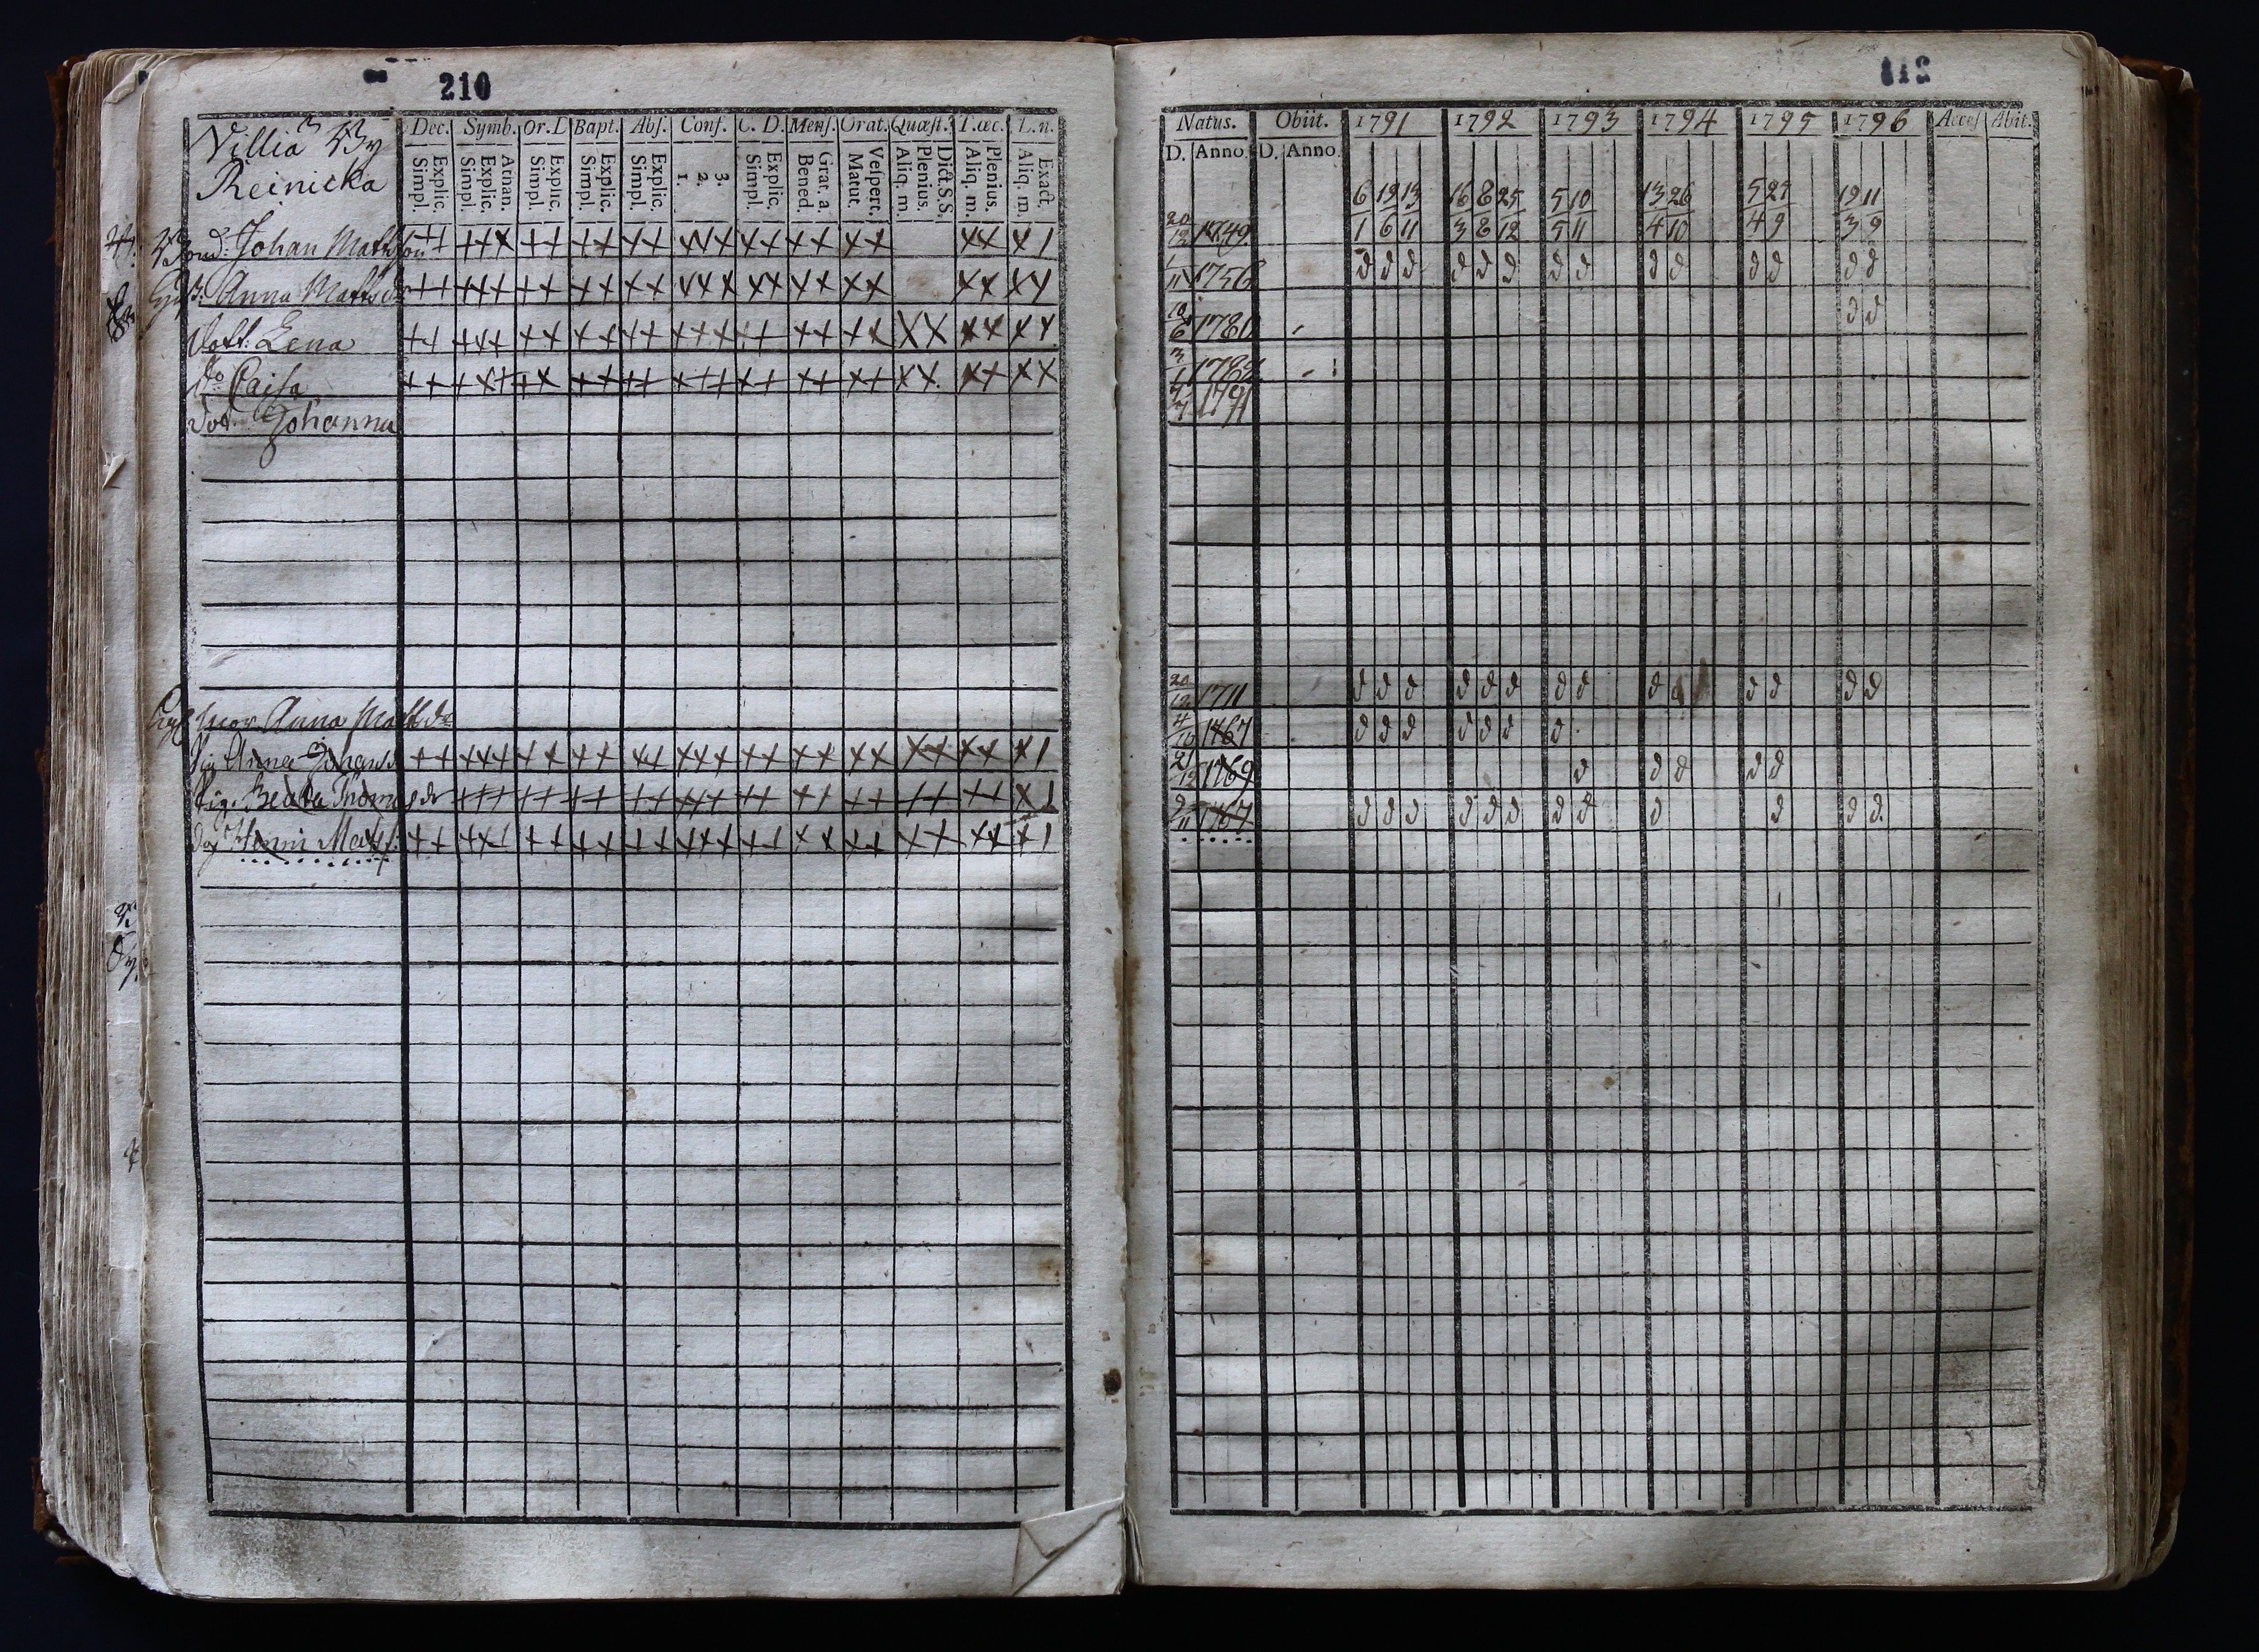 210
Villiä By
Reinickä
Dec. Symb. Or. D Bapt. Abs. Conf. C. D. Mens. Orat. Quæst. T. æc. L. n.
Simpl. Explic. Simpl. Explic. Athan. Simpl. Explic. Simpl. Explic. Simpl. Explic. 1. 2. 3. Simpl. Explic. Bened. Grat. a. Matut. Vespert. Aliq. m. Plenius. Dict. S.S. Aliq. m. Plenius. Aliq. m. Exact.
Bond: Johan Mattsson
Hust: Anna Mattsdr
Dott: Lena
Do Caisa
Dot. Johanna
Anna Mattsdr
Pig Anna Johansd
Pig. Beata Thomasdr
Henric Matts.
112
Natus. Obiit. 1791 1792 1793 1794 1795 1796 Acces Abit.
D. Anno. D. Anno.
6 19 13 16 8 25 5 10 13 26 5 27 19 11
1 6 11 3 8 12 5 11 4 10 4 9 3 9
20/12 1749
1/11 1756 d d d d d d d d d d d d d d
10/6 1780 d d
3/1 1783
1791
20/12 1711 d d d d d d d d d d d d d
4/10 1767 d d d d d d d
2/12 1769 d d d d d
2/11 1767 d d d d d d d d d d d d